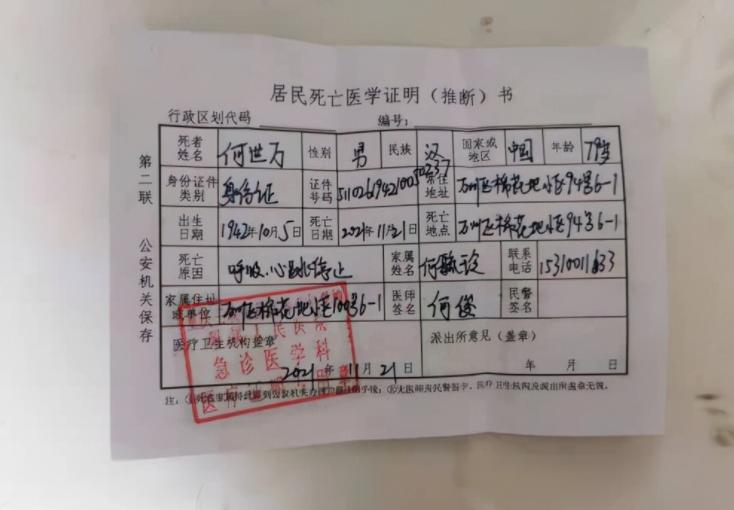 居民死亡医学证明（推断）书
行政区划代码 编号：
第二联 公安机关保存
死者姓名 何世万 性别 男 民族 汉 国家或地区 中国 年龄 79岁
身份证件类别 身份证 证件号码 常住地址 万州区棉花地小区94号6-1
出生日期 1942年10月5日 死亡日期 2021年11月21日 死亡地点 万州区棉花地小区94号6-1
死亡原因 呼吸、心跳停止 家属姓名 何 联系电话 15310011633
家属住址或单位 万州区棉花地小区100号6-1 医师签名 何俊 民警签名
医疗卫生机构盖章 派出所意见（盖章）
人民医院
急诊医学科
医疗证明
2021年11月21日 年 月 日